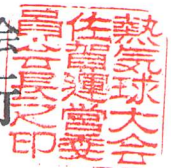 熱気球大会
佐賀運營委
員会長之印